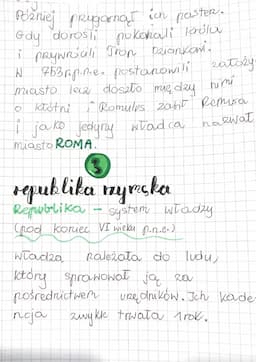 Później przygarnął ich pasterz.
Gdy dorośli pokonali króla
i przywrócili tron dziadkowi.
W 753r.p.n.e. postanowili założyć
miasto lecz doszło między nimi
o kłótni i Romulus zabił Remusa
i jako jedyny władca nazwał
miasto ROMA.
3
republika rzymska
Republika - system władzy
(pod koniec VI wieku p.n.e.)
władza należała do ludu,
który sprawował ją za
pośrednictwem urzędników. Ich kade
ncja zwykle trwała 1 rok.